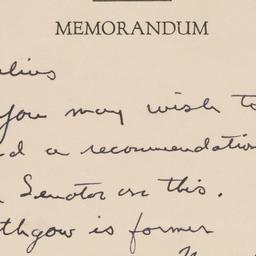 MEMORANDUM
lius
You may wish to
d a recommendation
Senator on this.
thgow is former